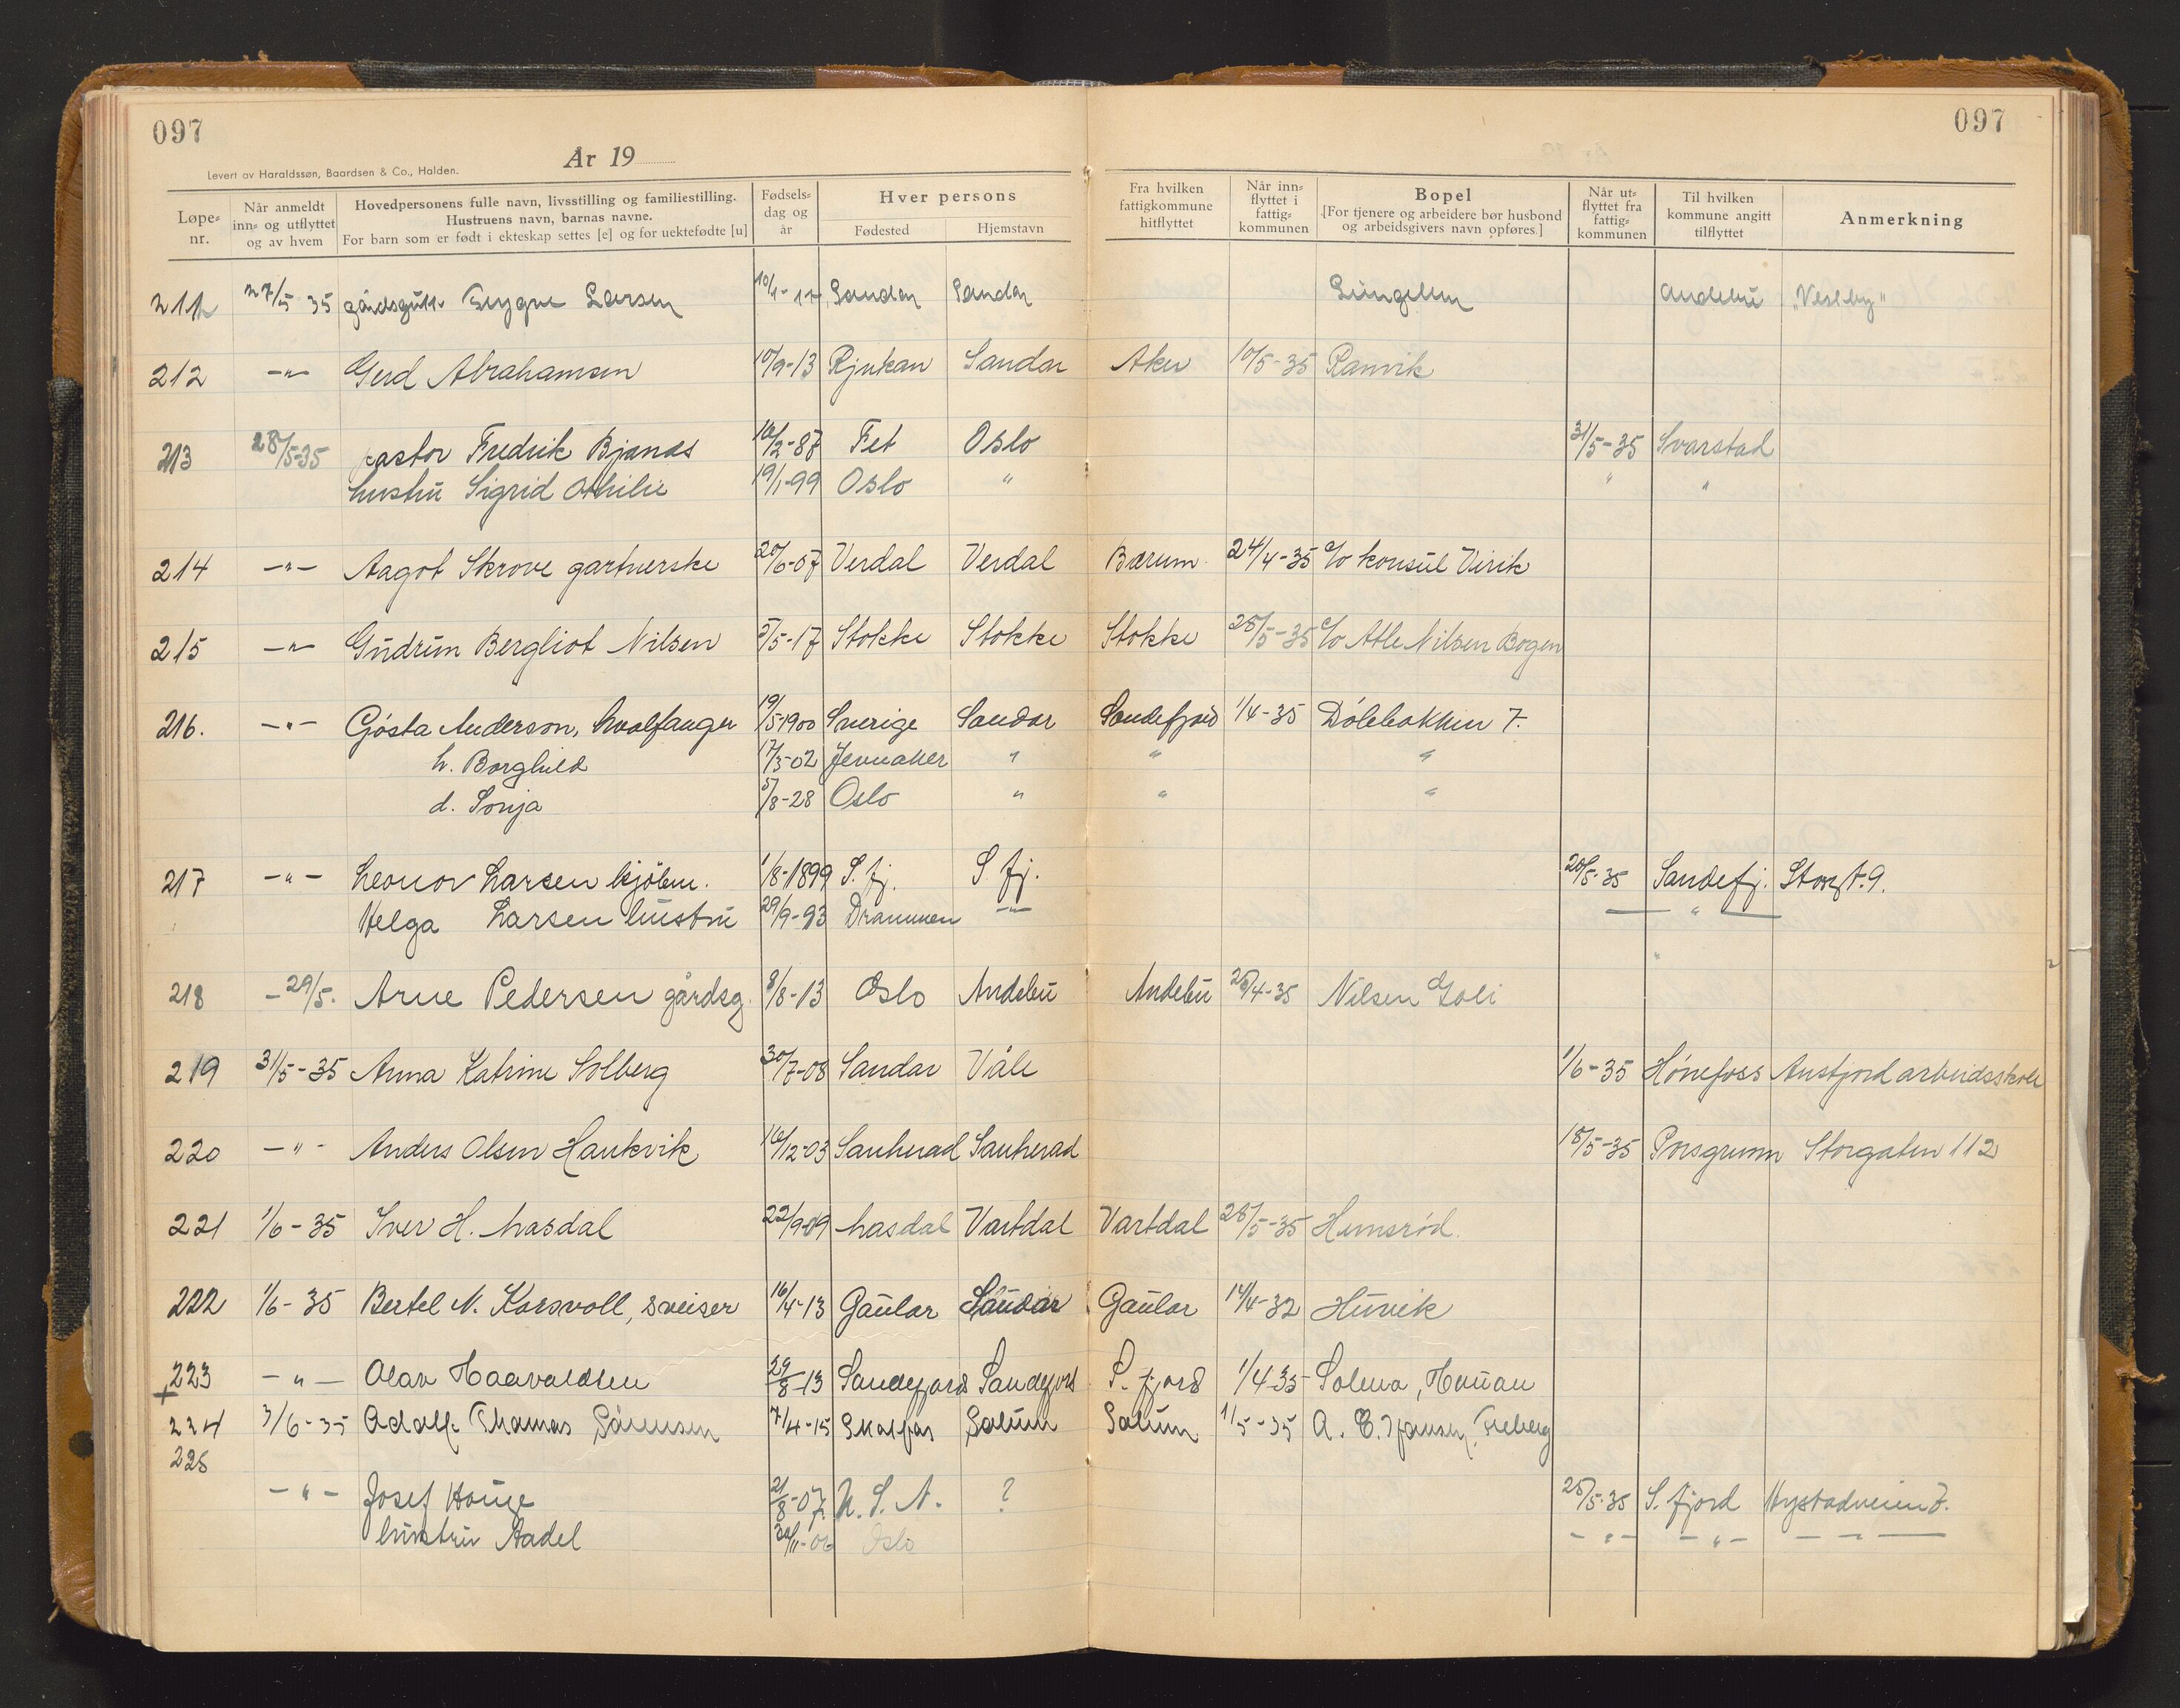 097
097
År 19
Levert av Haraldssøn, Baardsen & Co., Halden.
Løpe-nr. Når anmeldt inn- og utflyttet og av hvem Hovedpersonens fulle navn, livsstilling og familiestilling. Hustruens navn, barnas navne. For barn som er født i ekteskap settes [e] og for uektefødte [u] Fødsels-dag og år Hver persons Fødested Hjemstavn Fra hvilken fattigkommune hitflyttet Når inn-flyttet i fattig-kommunen Bopel [For tjenere og arbeidere bør husbond og arbeidsgivers navn opføres.] Når ut-flyttet fra fattig-kommunen Til hvilken kommune angitt tilflyttet Anmerkning
211 27/5 35 gårdsgutt Trygve Larsen Sandar Sandar Lingelem Andebu "Vestby"
212 -"- Gerd Abrahamsen 10/9-13 Rjukan Sandar Aker 10/5-35 Ranvik
213 28/5-35 pastor Fredrik Bjanes 10/2-87 Fet Oslo 31/5-35 Svarstad
hustru Sigrid Othilie 19/1-99 Oslo " " "
214 -"- Aagot Skrove gartnerske 20/6-07 Verdal Verdal Bærum 24/4-35 c/o konsul Virik
215 -"- Gudrun Bergliot Nilsen 5/5-17 Stokke Stokke Stokke 25/5-35 c/o Atle Nilsen Bogen
216. -"- Gøsta Anderson, hvalfanger 19/5-1900 Sverige Sandar Sandefjord 1/4-35 Dølebakken 7.
h. Borghild 17/3-02 Jevnaker " " "
d. Sonja 5/8-28 Oslo " " "
217 -"- Leonor Larsen kjøbm. 1/8-1899 S. fj. S. fj. 20/5-35 Sandefj. Storgt. 9.
Helga Larsen hustru 29/9-93 Drammen -"- - " -
"
218 -29/5. Arne Pedersen gårdsg. 8/8-13 Oslo Andebu Andebu 26/4-35 Nilsen Goli
219 31/5-35 Anna Katrine Solberg 30/7-08 Sandar Våle 1/6-35 Hønefoss Austjord arbeidsskole
220 -"- Anders Olsen Haukvik 16/12-03 Sauherad Sauherad 18/5-35 Porsgrunn Storgaten 112
221 1/6-35 Iver H. Masdal 22/9-09 Masdal Vartdal Vartdal 28/5-35 Hemsrød.
222 1/6-35 Bertel N. Korsvoll, sveiser 16/4-13 Gaular Sandar Gaular 14/4-32 Huvik
223 -"- Olav Haavaldsen 29/8-13 Sandefjord Sandefjord S. fjord 1/4-35 Solena, Hauan
224 3/6-35 Adolf Thomas Sørensen 7/4-15 Skotfos Solum Solum 1/5-35 A. E. Jansen, Freberg
225
-"- Josef Houge 21/8-07 U. S. A. ? 25/5-35 S. fjord Hystadveien 7.
hustru Aadel 30/11-06 Oslo -"- -"- -"-